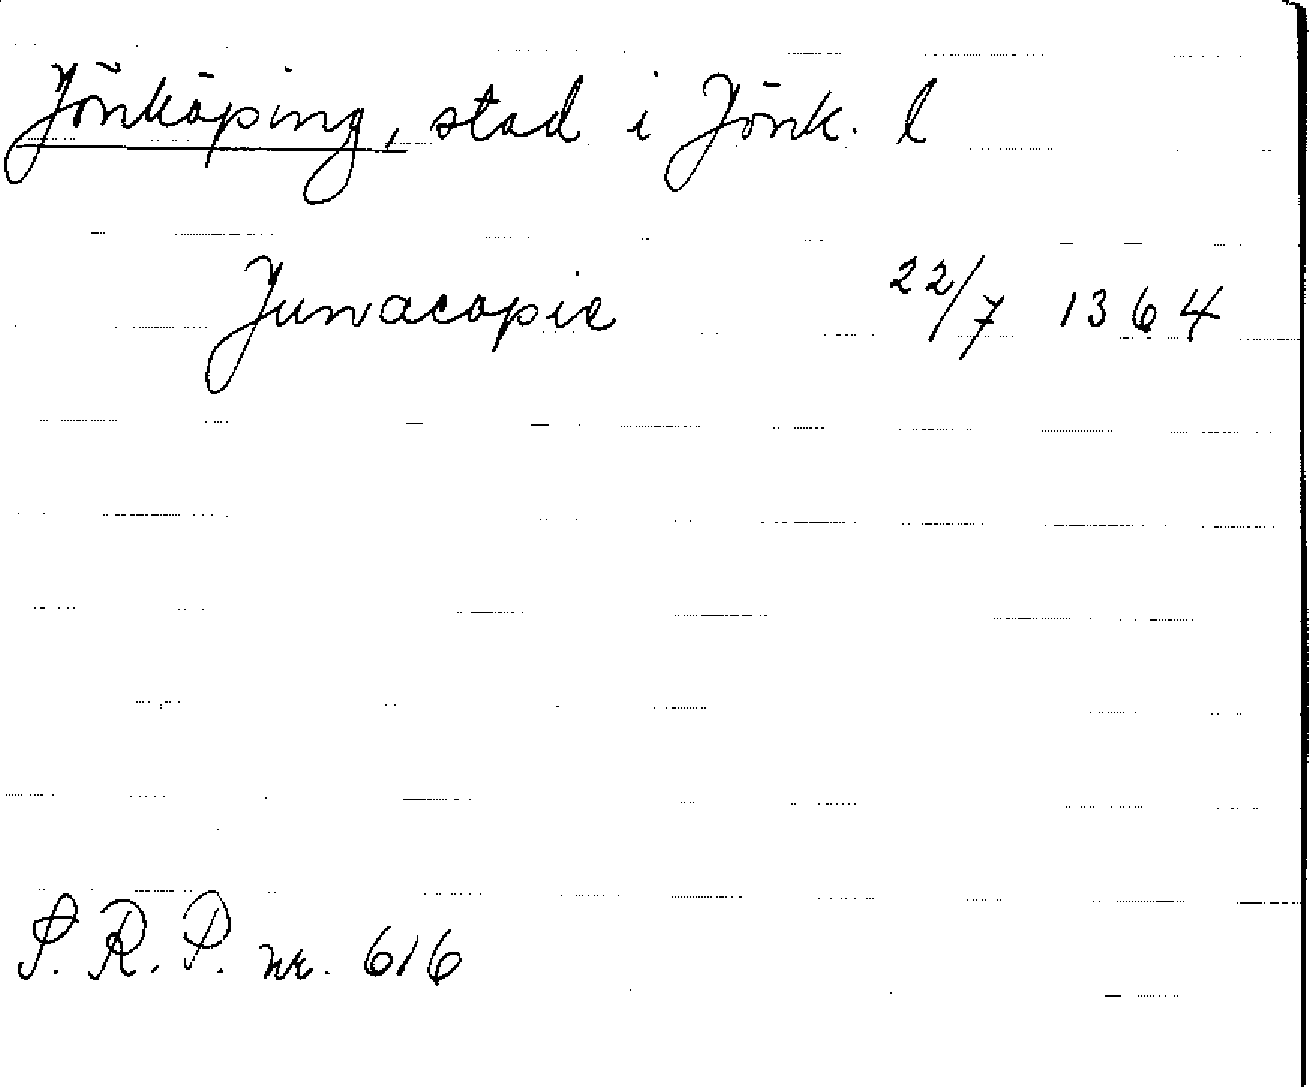 Jönköping, stad i Jönk. l
Junacopie 22/7 1364
S.R.P. nr. 616